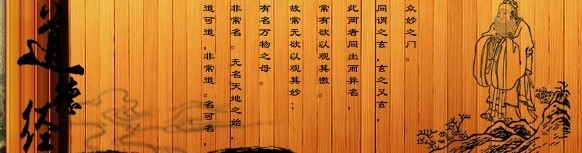 道德经
道可道，非常道。名可名，
非常名。无名天地之始
有名万物之母。
故常无欲以观其妙；
常有欲以观其徼。
此两者同出而异名，
同谓之玄，玄之又玄
众妙之门。